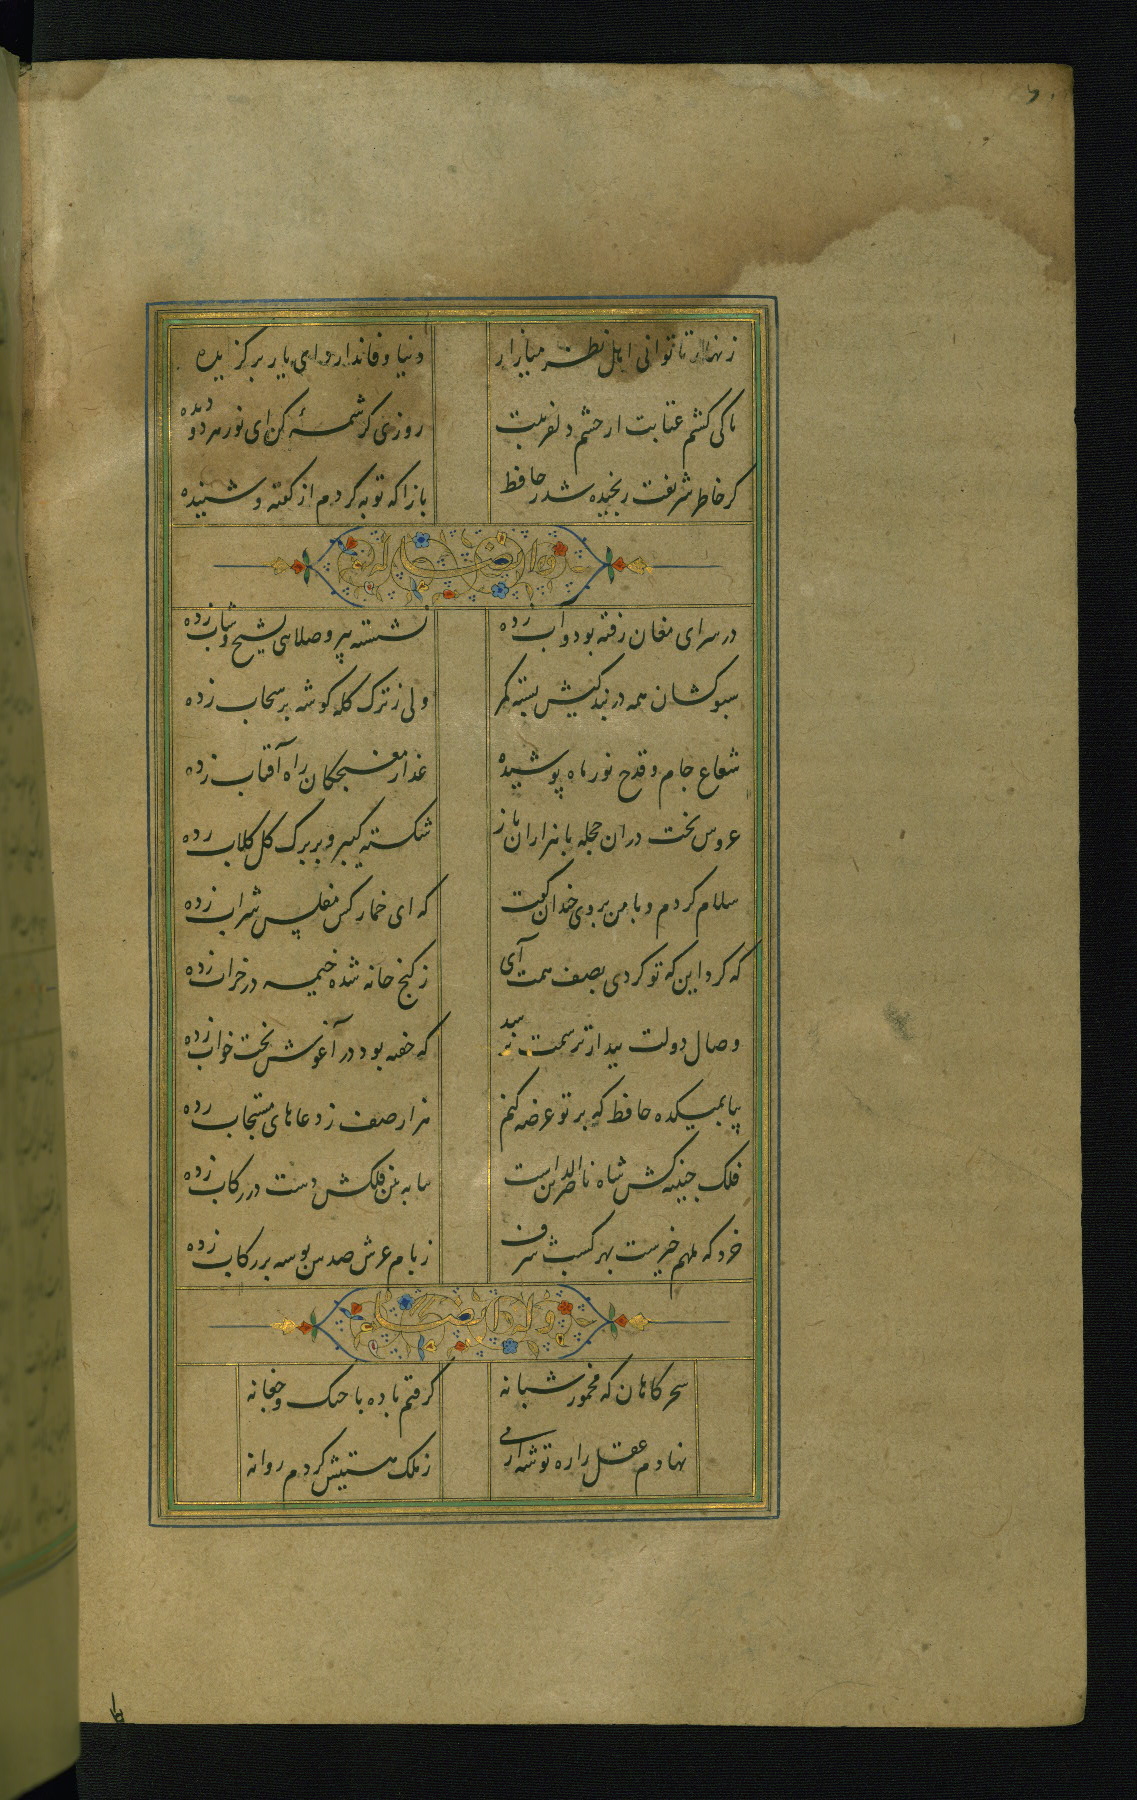 زنهار تا توانی اهل نظر میازار دنیا وفا ندارد ای یار برگزیده
تا کی کشم عتابت از چشم دلفریبت روزی کرشمهٔ کن ای نور هر دو دیده
کر خاطر شریفت رنجیده شد ز حافظ بازا که توبه کردم از کفته و شنیده
وله ایضا
در سرای مغان رفته بود و آب زده نشسته پیر و صلایی بشیخ و شاب زده
سبوکشان همه در بندکیش بسته کمر ولی ز ترک کله کوشه بر سحاب زده
شعاع جام و قدح نور ماه پوشیده عذار مغبچکان راه آفتاب زده
عروس بخت در ان حجله با هزاران ناز شکسته کیسو بر برک کل کلاب زده
سلام کردم و با من بروی خندان کفت که ای خمارکش مفلس شراب زده
که کرد این که تو کردی بضعف همت و رای ز کنج خانه شده خیمه در خراب زده
وصال دولت بیدار ترسمت ندهند که خفته بود در آغوش بخت خواب زده
بیا بمیکده حافظ که بر تو عرضه کنم هزار صف ز دعاهای مستجاب زده
فلک جنیبه کش شاه ناصرالدین است بیا به بین فلکش دست در رکاب زده
خرد که ملهم غیبست بهر کسب شرف ز بام عرش صدش بوسه بر رکاب زده
وله ایضا
سحرکاهان که مخمور شبانه کرفتم باده با چنک و چغانه
نهادم عقل را ره توشه از می ز ملک هستیش کردم روانه